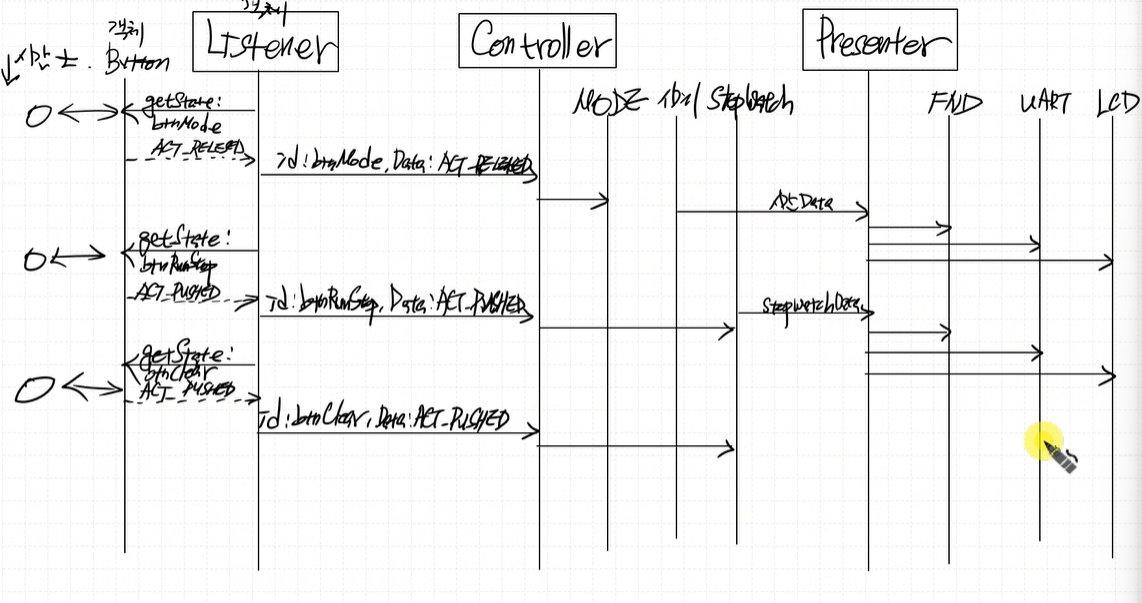 객체
객체
↓시간 순.
Button
Listener
Controller
Presenter
MODE
시계/
Stopwatch
FND
UART
LCD
getState:
btnMode
ACT_RELEASED
id:btnMode, Data:ACT_RELEASED
시간Data
getState:
btnRunStop
ACT_PUSHED
id:btnRunStop, Data:ACT_PUSHED
stopwatchData
getState:
btnClear
ACT_PUSHED
id:btnClear, Data:ACT_PUSHED